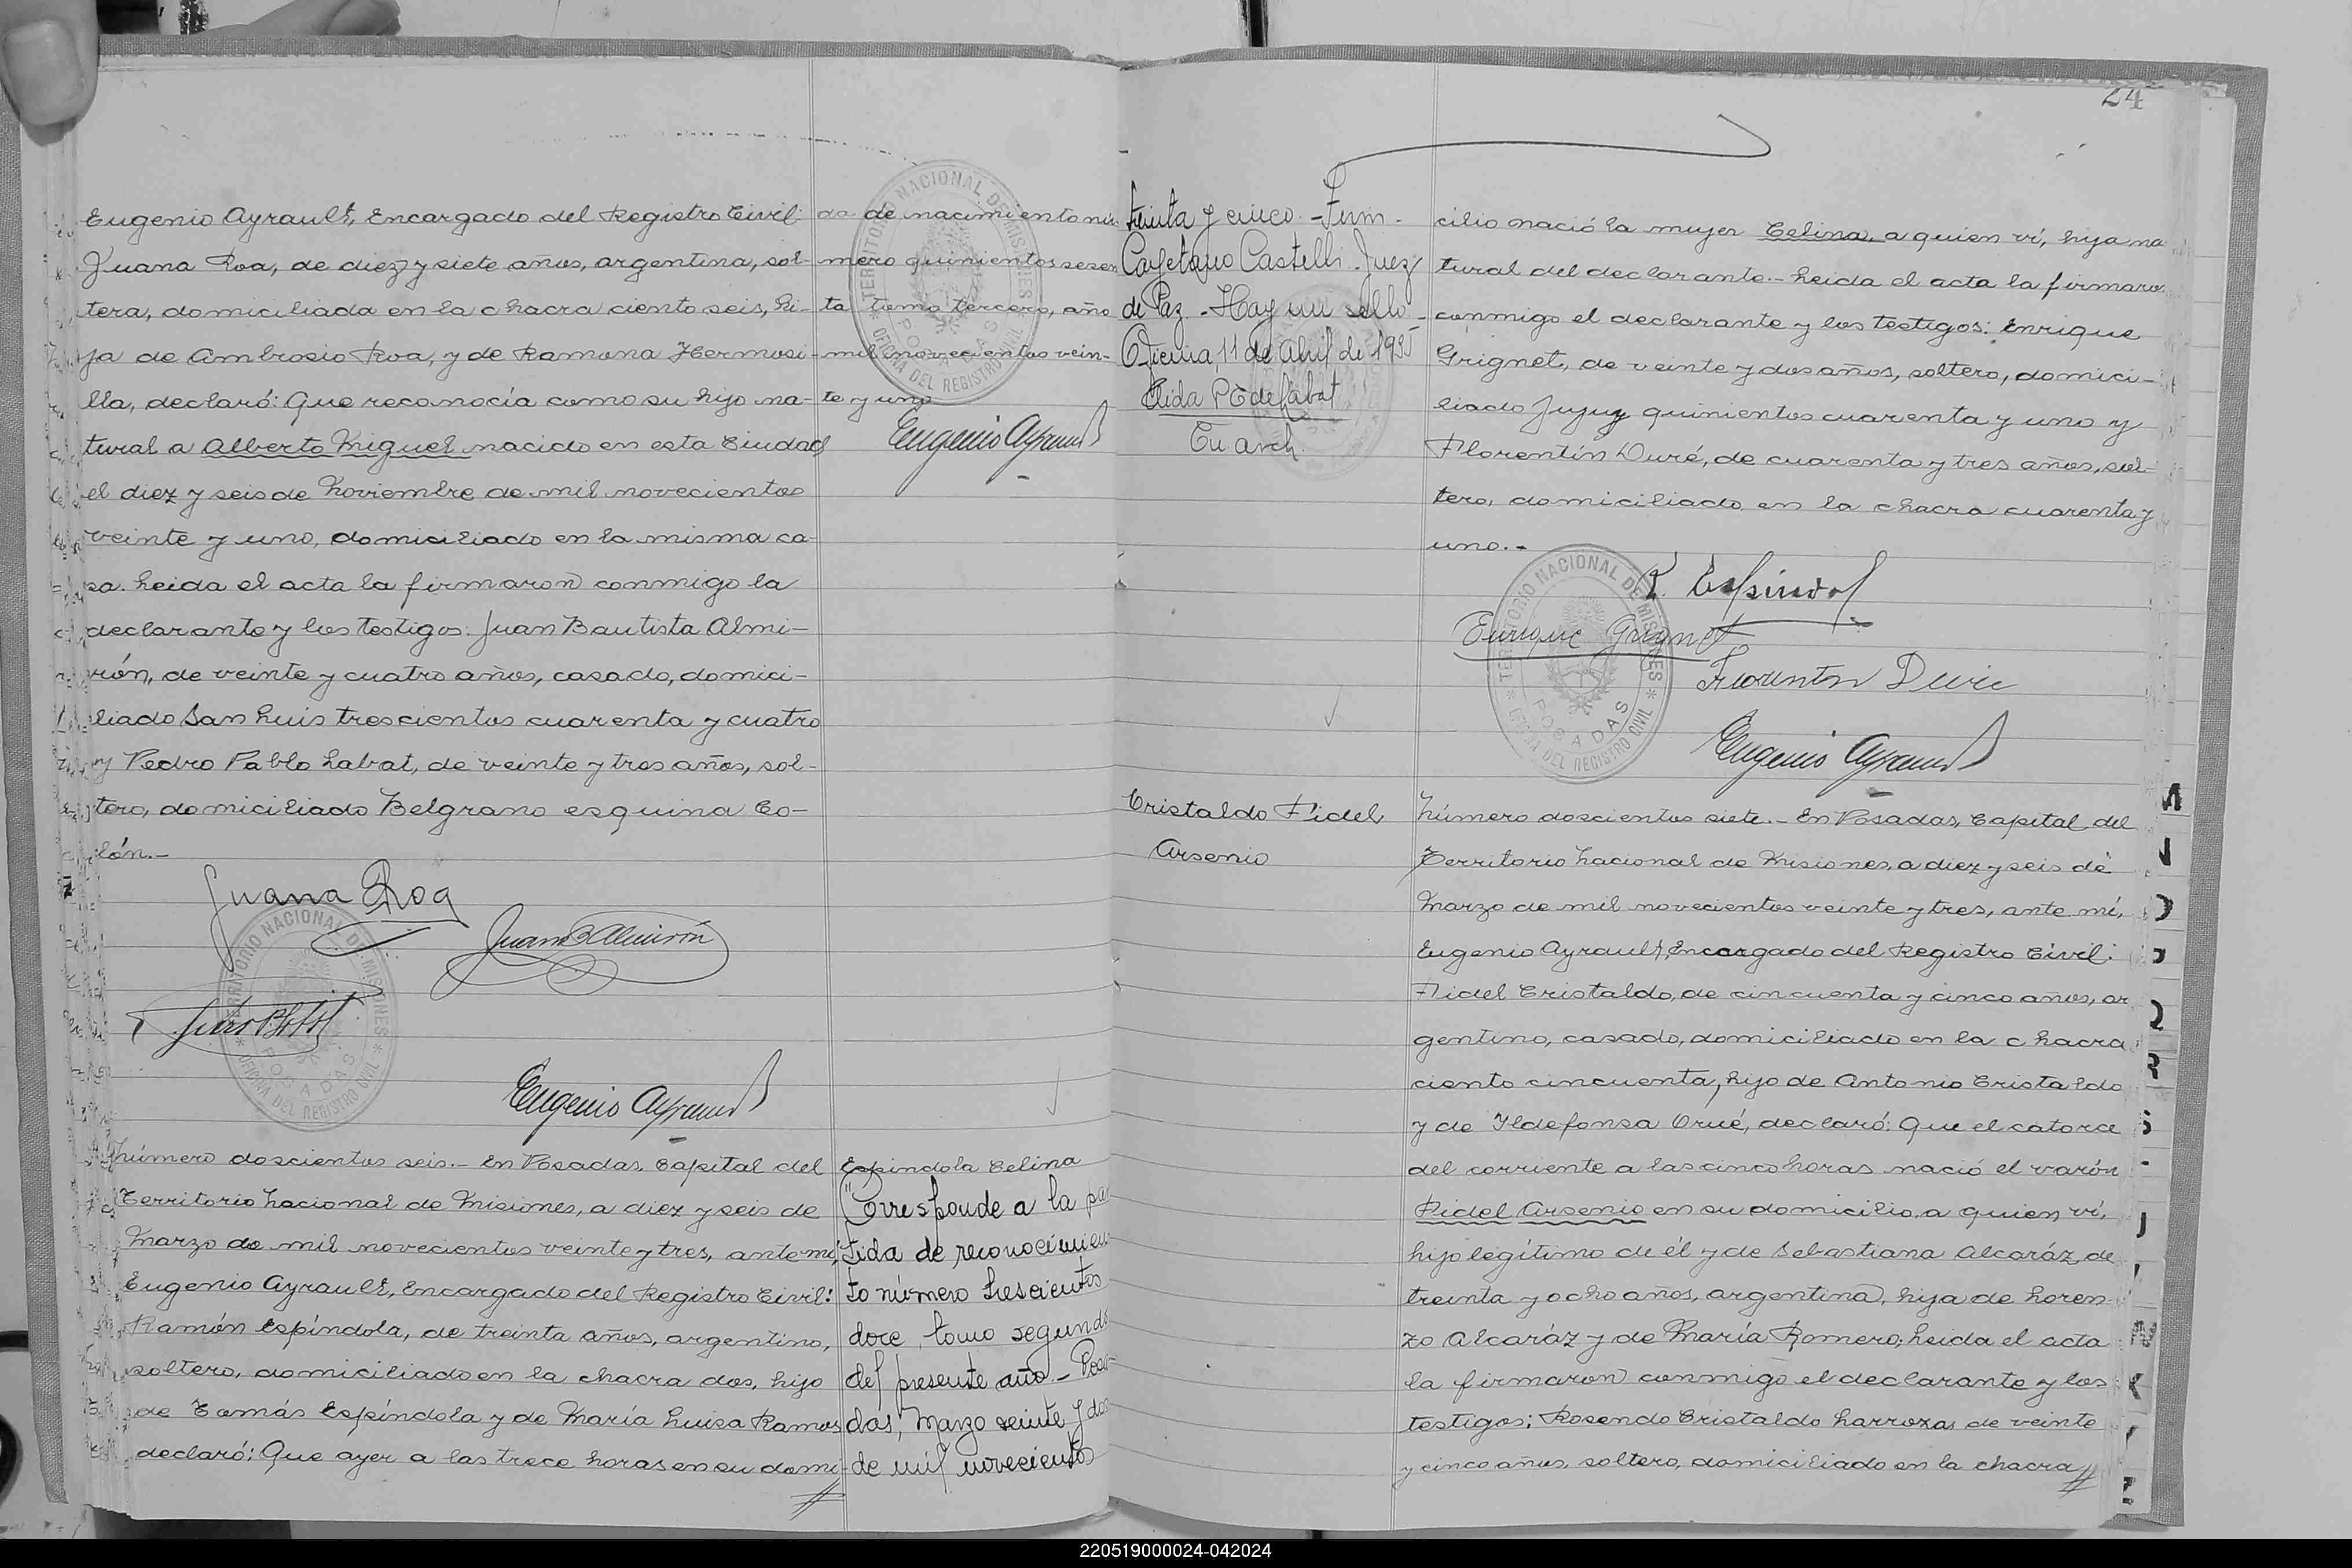 24
Eugenio Ayrault, Encargado del Registro Civil:
Juana Roa, de diez y siete años, argentina, sol-
tera, domiciliada en la chacra ciento seis, hi-
ja de Ambrosio Roa, y de Ramona Hermosi-
lla, declaró: Que reconocía como su hijo na-
tural a Alberto Miguel nacido en esta Ciudad
el diez y seis de Noviembre de mil novecientos
veinte y uno, domiciliado en la misma ca-
sa. Leida el acta la firmaron conmigo la
declarante y los testigos: Juan Bautista Almi-
rón, de veinte y cuatro años, casado, domici-
liado San Luis trescientos cuarenta y cuatro
y Pedro Pablo Labat, de veinte y tres años, sol-
tero, domiciliado Belgrano esquina Co-
lón.-
Juana Roa
Juan B Almirón
Eugenio Ayrault
TERRITORIO NACIONAL DE MISIONES
POSADAS
OFICINA DEL REGISTRO CIVIL
da de nacimiento nú-
mero quinientos sesen
ta tomo tercero, año
mil novecientos vein-
te y uno
Eugenio Ayrault
TERRITORIO NACIONAL DE MISIONES
POSADAS
OFICINA DEL REGISTRO CIVIL
Número doscientos seis.- En Posadas, Capital del
Territorio Nacional de Misiones, a diez y seis de
Marzo de mil novecientos veinte y tres, ante mí,
Eugenio Ayrault, Encargado del Registro Civil:
Ramón Espíndola, de treinta años, argentino,
soltero, domiciliado en la chacra dos, hijo
de Tomás Espíndola y de María Luisa Ramos
declaró: Que ayer a las trece horas en su domi-
Espíndola Celina
"Corresponde a la par
tida de reconocimien
to número trescientos
doce, tomo segundo
del presente año.- Posa-
das, Marzo veinte y dos
de mil novecientos
treinta y cinco.- Firm.
Cayetano Castelli. Juez
de Paz - Hay un sello -
Oficina, 11 de Abril de 1935
Elida P de Labat
Enc arch.
cilio nació la mujer Celina, a quien ví, hija na
tural del declarante.- Leida el acta la firmaron
conmigo el declarante y los testigos: Enrique
Grignet, de veinte y dos años, soltero, domici-
liado Jujuy quinientos cuarenta y uno y
Florentín Duré, de cuarenta y tres años, sol-
tero, domiciliado en la chacra cuarenta y
uno.-
R. Espindol
Enrique Grignet
Florentin Dure
Eugenio Ayrault
TERRITORIO NACIONAL DE MISIONES
POSADAS
OFICINA DEL REGISTRO CIVIL
Cristaldo Fidel
Arsenio
Número doscientos siete.- En Posadas, Capital del
Territorio Nacional de Misiones, a diez y seis de
Marzo de mil novecientos veinte y tres, ante mí,
Eugenio Ayrault, Encargado del Registro Civil:
Fidel Cristaldo, de cincuenta y cinco años, ar
gentino, casado, domiciliado en la chacra
ciento cincuenta, hijo de Antonio Cristaldo
y de Ildefonsa Orué, declaró: Que el catorce
del corriente a las cinco horas nació el varón
Fidel Arsenio en su domicilio, a quien ví,
hijo legítimo de él y de Sebastiana Alcaráz, de
treinta y ocho años, argentina, hija de Loren-
zo Alcaráz y de María Romero; Leida el acta
la firmaron conmigo el declarante y los
testigos; Rosendo Cristaldo Larroza, de veinte
y cinco años, soltero, domiciliado en la chacra
220519000024-042024